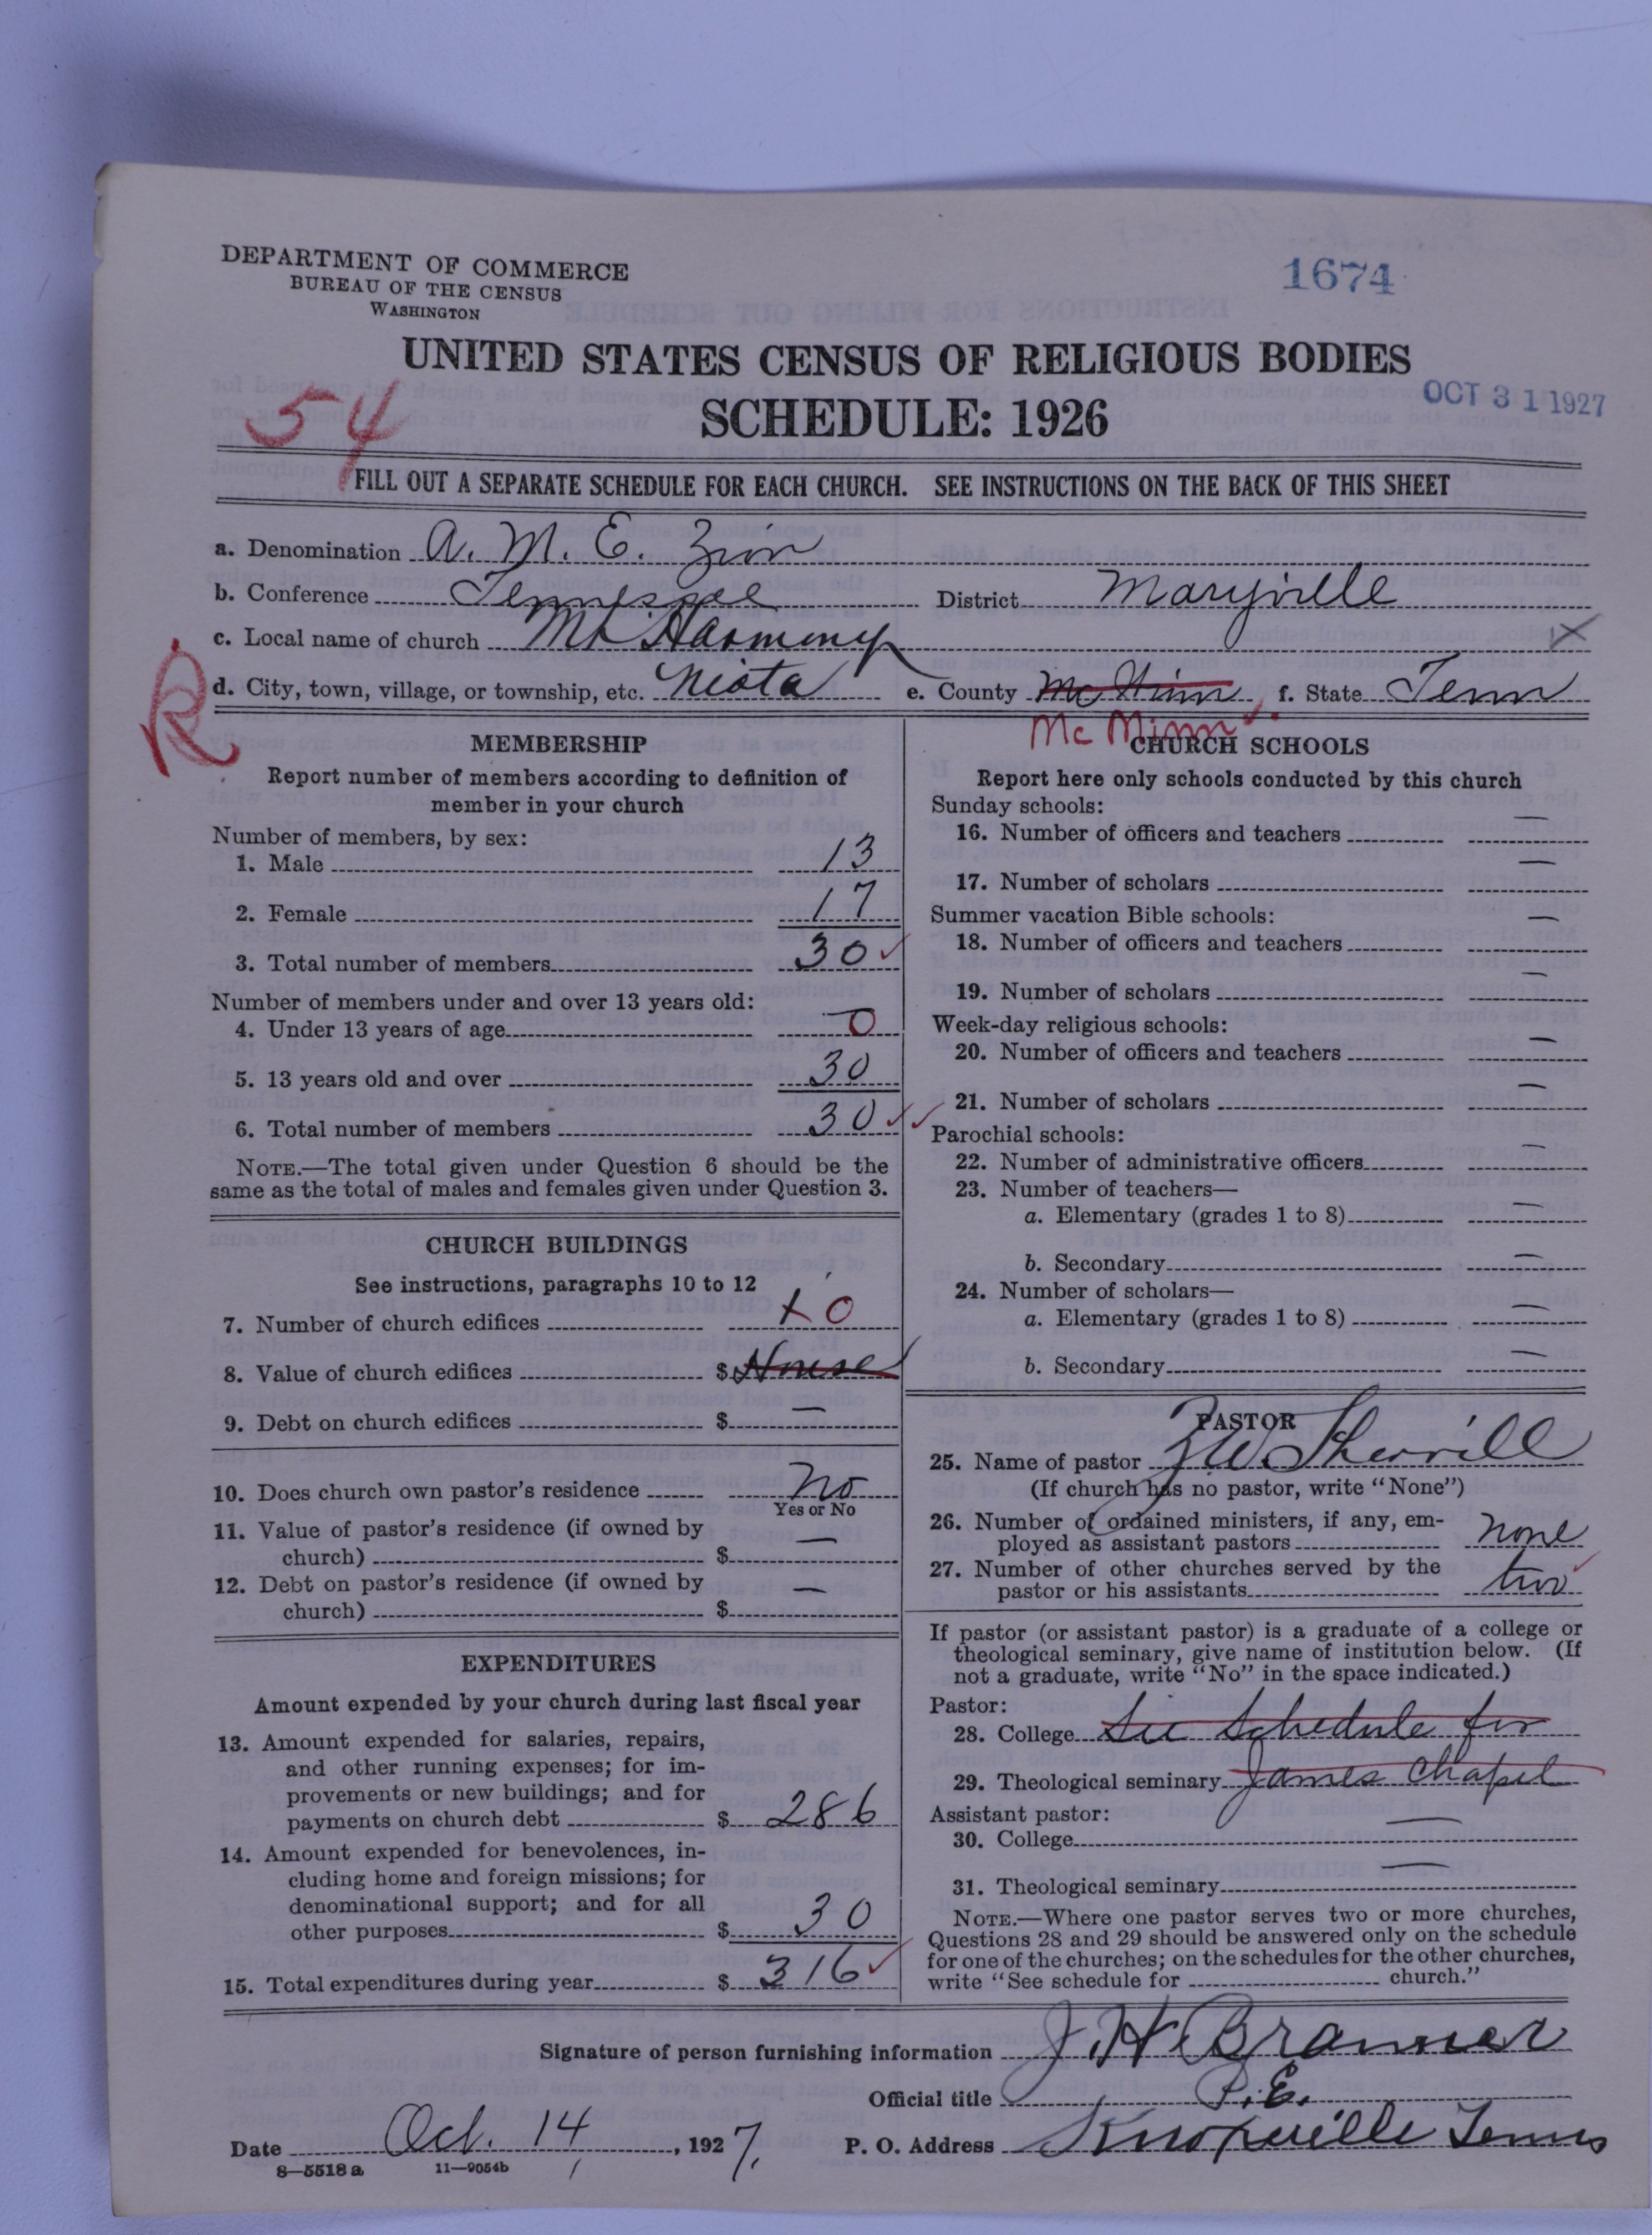 DEPARTMENT OF COMMERCE
BUREAU OF THE CENSUS
WASHINGTON
1674
UNITED STATES CENSUS OF RELIGIOUS BODIES
SCHEDULE: 1926
OCT 31 1927
54
FILL OUT A SEPARATE SCHEDULE FOR EACH CHURCH. SEE INSTRUCTIONS ON THE BACK OF THIS SHEET
a. Denomination A. M. E. Zion
b. Conference Tennessee District Maryville
c. Local name of church Mt Harmony X
d. City, town, village, or township, etc. Niota e. County f. State Tenn
R
Mc Minn
MEMBERSHIP
Report number of members according to definition of
member in your church
Number of members, by sex:
1. Male 13
2. Female 17
3. Total number of members 30
Number of members under and over 13 years old:
4. Under 13 years of age 0
5. 13 years old and over 30
6. Total number of members 30
NOTE.—The total given under Question 6 should be the
same as the total of males and females given under Question 3.
CHURCH BUILDINGS
See instructions, paragraphs 10 to 12
7. Number of church edifices 0
8. Value of church edifices $
9. Debt on church edifices $ —
10. Does church own pastor's residence No
Yes or No
11. Value of pastor's residence (if owned by
church) $ —
12. Debt on pastor's residence (if owned by
church) $ —
EXPENDITURES
Amount expended by your church during last fiscal year
13. Amount expended for salaries, repairs,
and other running expenses; for im-
provements or new buildings; and for
payments on church debt $ 286
14. Amount expended for benevolences, in-
cluding home and foreign missions; for
denominational support; and for all
other purposes $ 30
15. Total expenditures during year $ 316
CHURCH SCHOOLS
Report here only schools conducted by this church
Sunday schools:
16. Number of officers and teachers —
17. Number of scholars —
Summer vacation Bible schools:
18. Number of officers and teachers —
19. Number of scholars —
Week-day religious schools:
20. Number of officers and teachers —
21. Number of scholars —
Parochial schools:
22. Number of administrative officers —
23. Number of teachers—
a. Elementary (grades 1 to 8) —
b. Secondary —
24. Number of scholars—
a. Elementary (grades 1 to 8) —
b. Secondary —
PASTOR
25. Name of pastor Z W Sherrill
(If church has no pastor, write "None")
26. Number of ordained ministers, if any, em-
ployed as assistant pastors none
27. Number of other churches served by the
pastor or his assistants two
If pastor (or assistant pastor) is a graduate of a college or
theological seminary, give name of institution below. (If
not a graduate, write "No" in the space indicated.)
Pastor:
28. College See Schedule for
29. Theological seminary James Chapel
Assistant pastor:
30. College —
31. Theological seminary —
NOTE.—Where one pastor serves two or more churches,
Questions 28 and 29 should be answered only on the schedule
for one of the churches; on the schedules for the other churches,
write "See schedule for church."
Signature of person furnishing information J. H. Branner
Official title P. E.
Date Oct. 14, 1927. P. O. Address Knoxville Tenn
8—5518 a 11—9054b